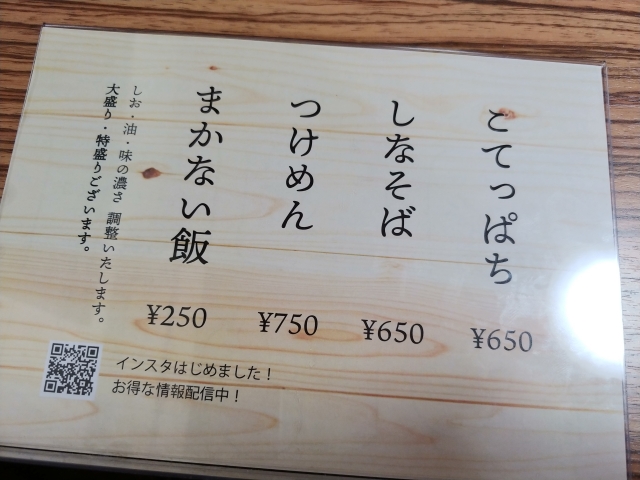 こてっぱち
¥650
しなそば
¥650
つけめん
¥750
まかない飯
¥250
しお・油・味の濃さ 調整いたします。
大盛り・特盛りございます。
インスタはじめました！
お得な情報配信中！